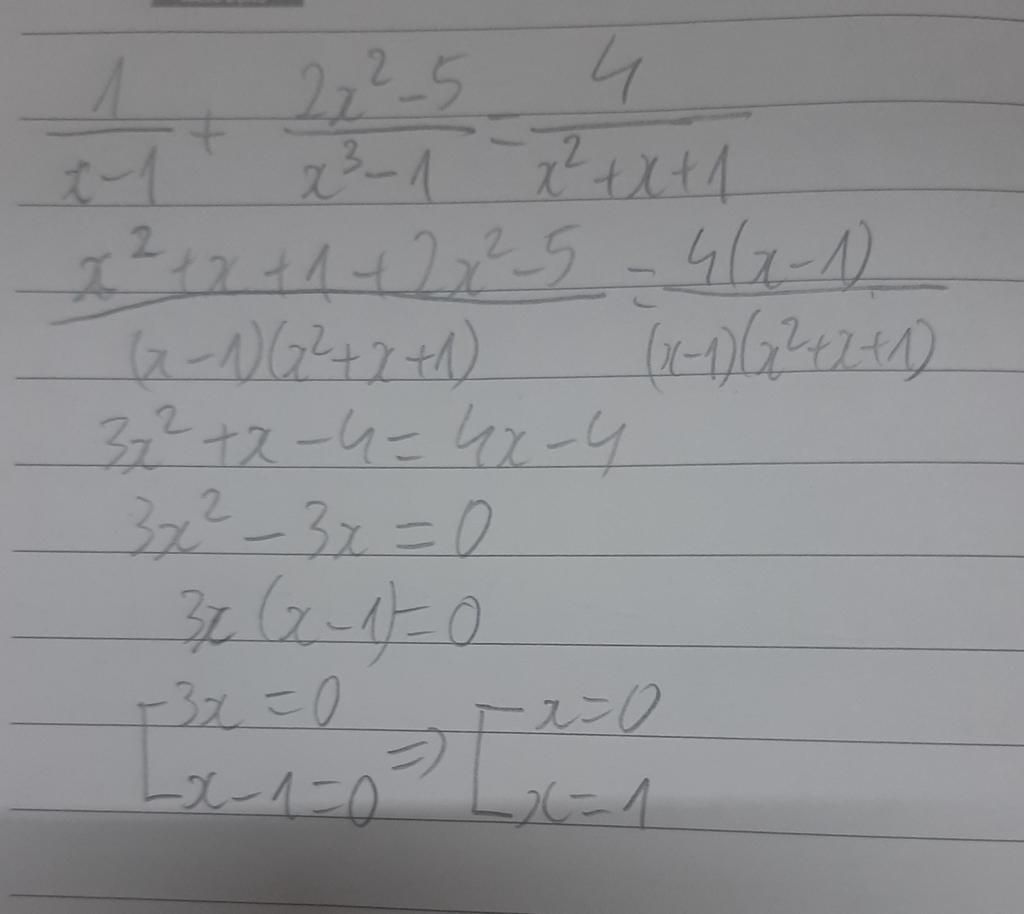 1/(x-1) + (2x²-5)/(x³-1) = 4/(x²+x+1)
(x²+x+1+2x²-5)/((x-1)(x²+x+1)) = 4(x-1)/((x-1)(x²+x+1))
3x²+x-4=4x-4
3x²-3x=0
3x(x-1)=0
[3x=0 => [x=0
[x-1=0 [x=1